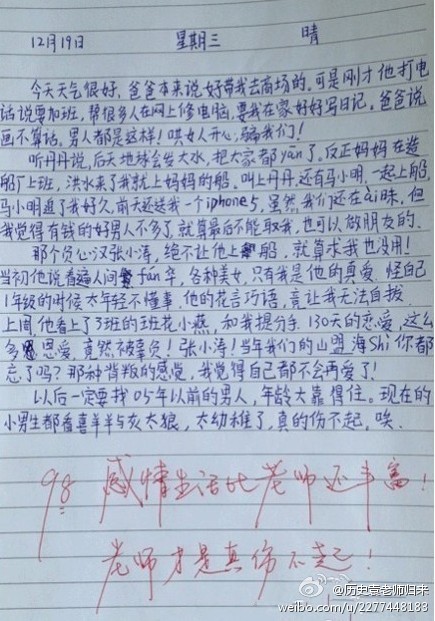 12月19日 星期三 晴
今天天气很好，爸爸本来说好带我去商场的。可是刚才他打电
话说要加班，帮很多人在网上修电脑，要我在家好好写日记。爸爸说
画不算话。男人都是这样！哄女人开心，骗我们！
听丹丹说，后天地球会发大水，把大家都yān了。反正妈妈在造
船厂上班，洪水来了我就上妈妈的船。叫上丹丹，还有马小明，一起上船，
马小明追了我好久，前天还送我一个iphone5，虽然我们还在ài昧，但
我觉得有钱的好男人不多了，就算最后不能取我，也可以做朋友的。
那个负心汉张小涛，绝不让他上船，就算求我也没用！
当初他说看遍人间fán辛，各种美女，只有我是他的真爱。怪自己
1年级的时候太年轻不懂事，他的花言巧语，竟让我无法自拔。
上周他看上了3班的班花小燕，和我提分手。130天的恋爱，这么
多恩爱，竟然被辜负！张小涛！当年我们的山盟海Shì你都
忘了吗？那种背叛的感觉，我觉得自己都不会再爱了！
以后一定要找05年以前的男人，年龄大靠得住。现在的
小男生都看喜羊羊与灰太狼，太幼稚了，真的伤不起，唉。
98 感情生活比老师还丰富！
老师才是真伤不起！
@历史袁老师归来
weibo.com/u/2277448183